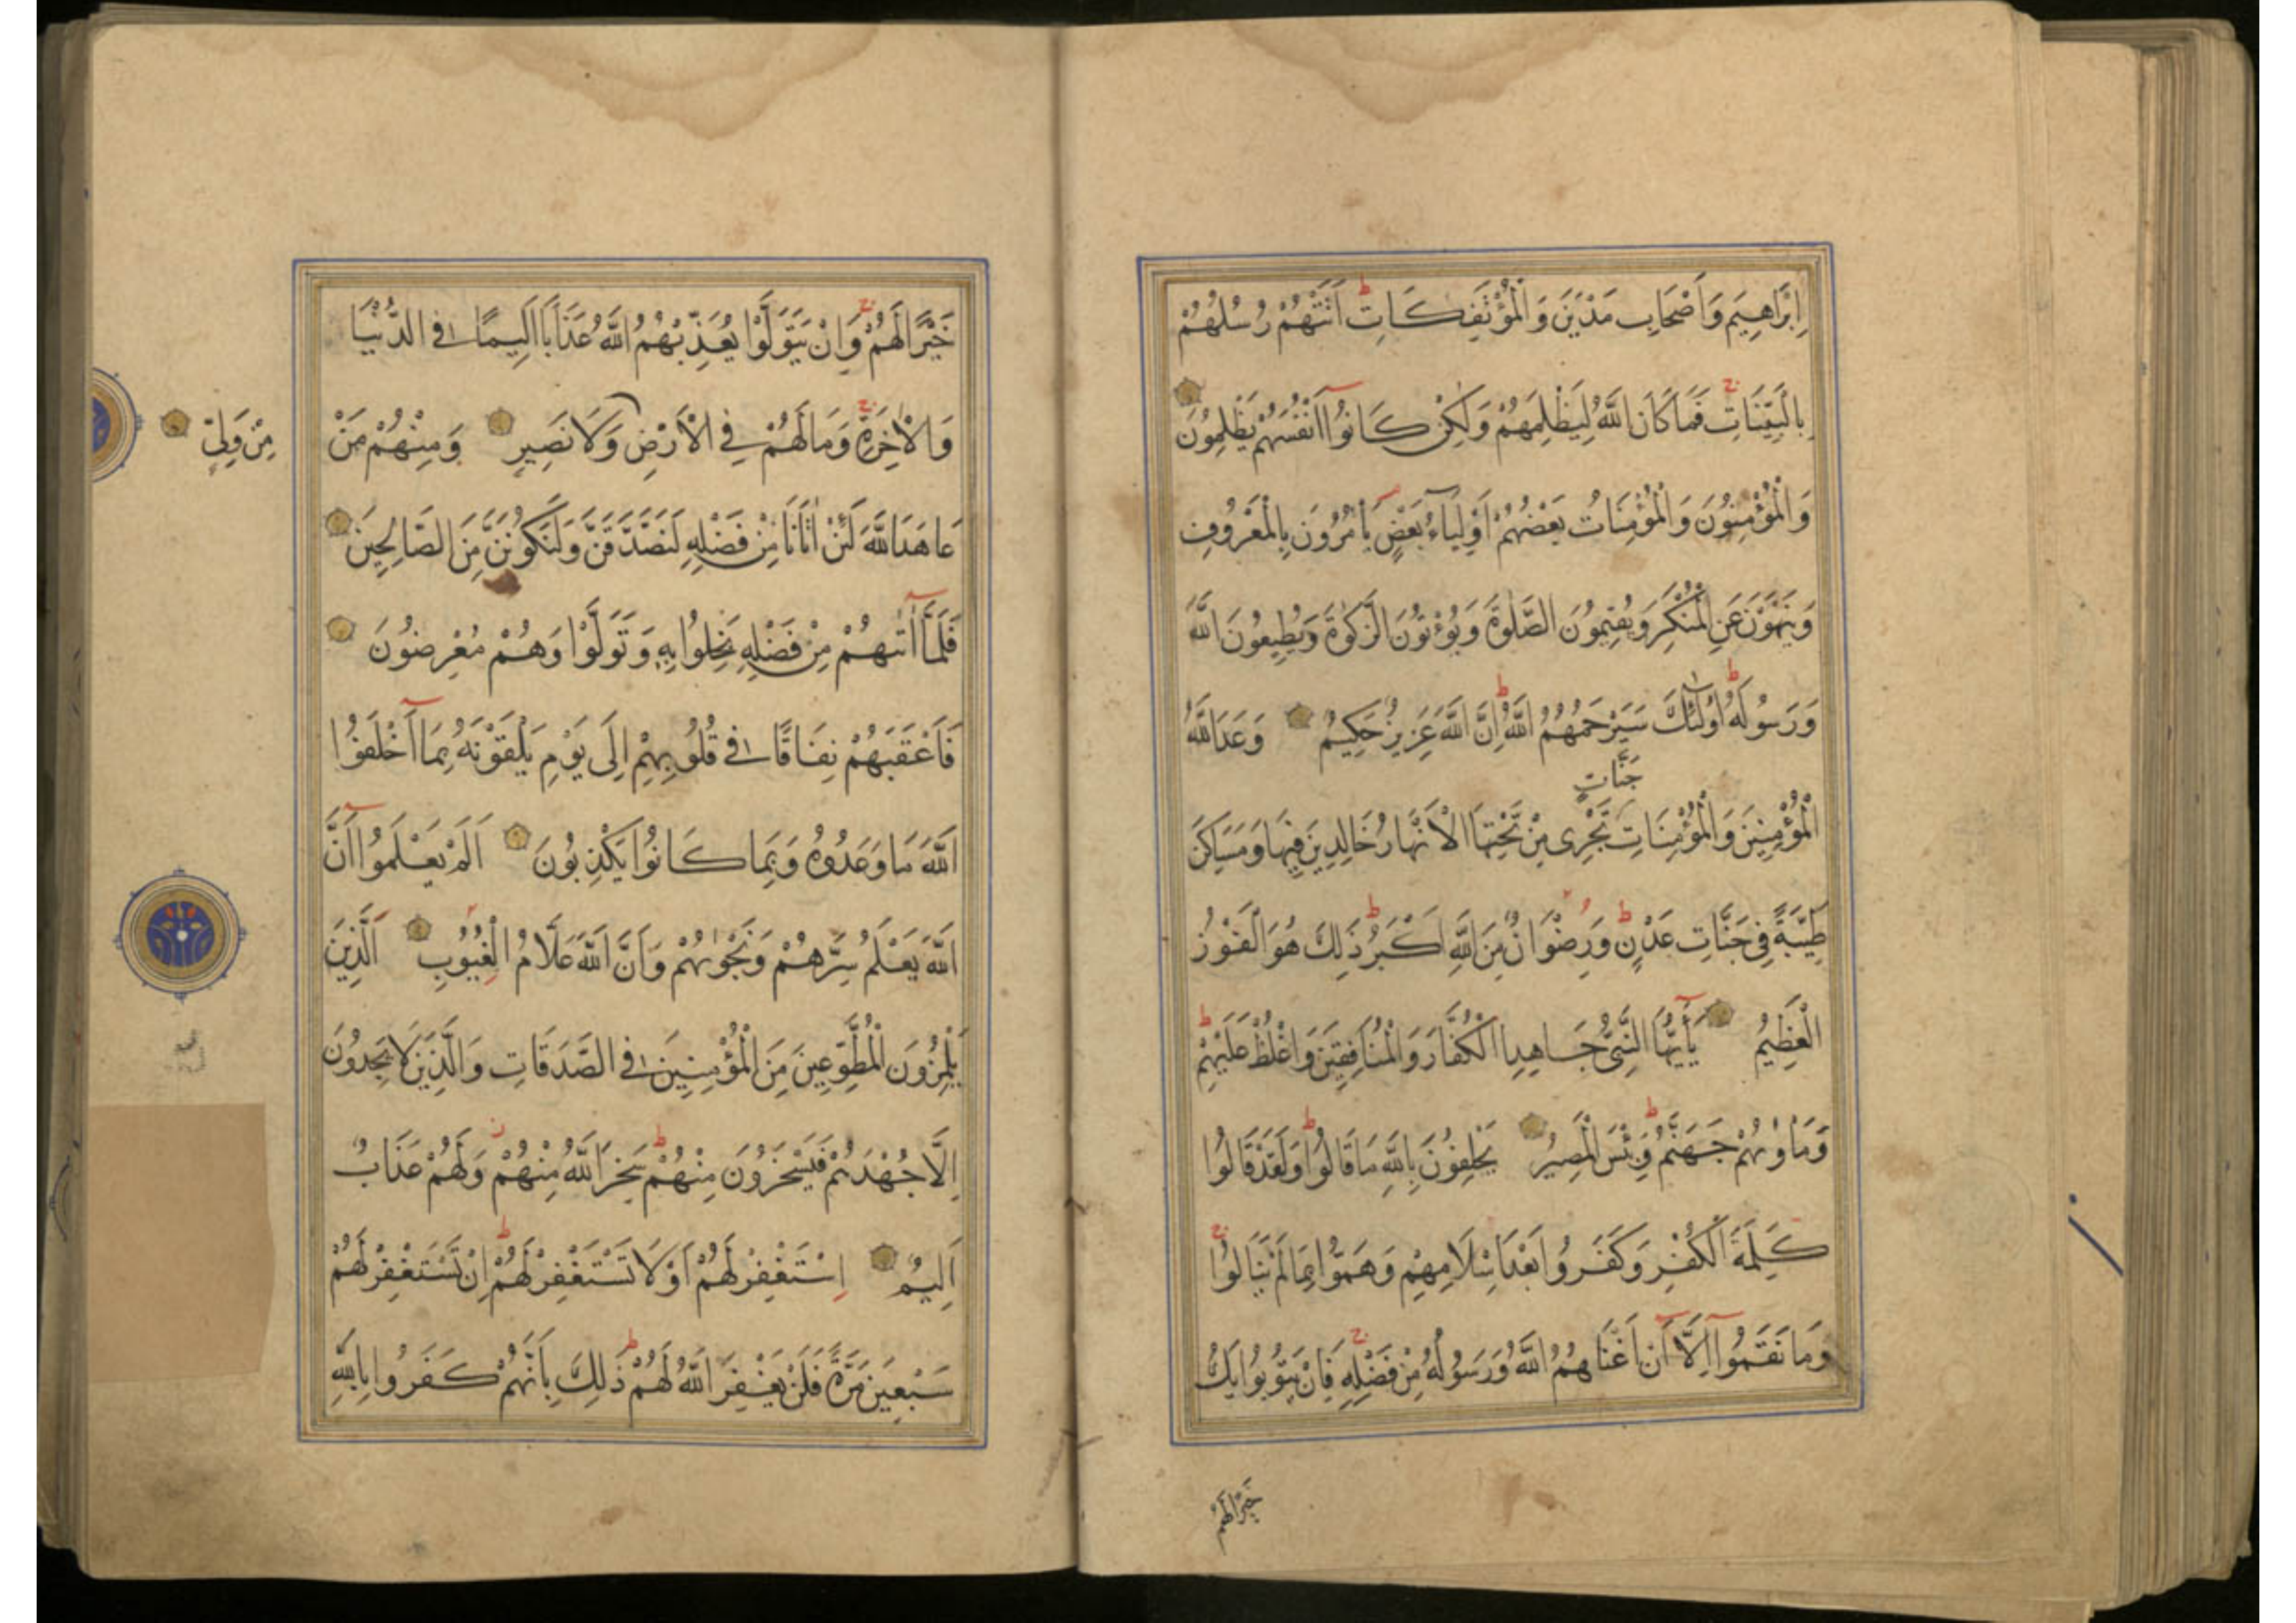 اِبْرَاهِيمَ وَاَصْحَابِ مَدْيَنَ وَالْمُؤْتَفِكَاتِ ط اَتَتْهُمْ رُسُلُهُمْ
بِالْبَيِّنَاتِ ج فَمَا كَانَ اللّٰهُ لِيَظْلِمَهُمْ وَلٰكِنْ كَانُوا اَنْفُسَهُمْ يَظْلِمُونَ
وَالْمُؤْمِنُونَ وَالْمُؤْمِنَاتُ بَعْضُهُمْ اَوْلِيَاءُ بَعْضٍ يَاْمُرُونَ بِالْمَعْرُوفِ
وَيَنْهَوْنَ عَنِ الْمُنْكَرِ وَيُقِيمُونَ الصَّلٰوةَ وَيُؤْتُونَ الزَّكٰوةَ وَيُطِيعُونَ اللّٰهَ
وَرَسُولَهُ ط اُولٰئِكَ سَيَرْحَمُهُمُ اللّٰهُ ط اِنَّ اللّٰهَ عَزِيزٌ حَكِيمٌ وَعَدَ اللّٰهُ
جَنَّاتٍ
الْمُؤْمِنِينَ وَالْمُؤْمِنَاتِ تَجْرِى مِنْ تَحْتِهَا الْاَنْهَارُ خَالِدِينَ فِيهَا وَمَسَاكِنَ
طَيِّبَةً فِى جَنَّاتِ عَدْنٍ ط وَرِضْوَانٌ مِنَ اللّٰهِ اَكْبَرُ ط ذٰلِكَ هُوَ الْفَوْزُ
الْعَظِيمُ يَا اَيُّهَا النَّبِىُّ جَاهِدِ الْكُفَّارَ وَالْمُنَافِقِينَ وَاغْلُظْ عَلَيْهِمْ ط
وَمَاْوٰىهُمْ جَهَنَّمُ ط وَبِئْسَ الْمَصِيرُ يَحْلِفُونَ بِاللّٰهِ مَا قَالُوا ط وَلَقَدْ قَالُوا
كَلِمَةَ الْكُفْرِ وَكَفَرُوا بَعْدَ اِسْلَامِهِمْ وَهَمُّوا بِمَا لَمْ يَنَالُوا ج
وَمَا نَقَمُوا اِلَّا اَنْ اَغْنَاهُمُ اللّٰهُ وَرَسُولُهُ مِنْ فَضْلِهِ ج فَاِنْ يَتُوبُوا يَكُ
خَيْرًا لَهُمْ
خَيْرًا لَهُمْ ج وَاِنْ يَتَوَلَّوْا يُعَذِّبْهُمُ اللّٰهُ عَذَابًا اَلِيمًا فِى الدُّنْيَا
وَالْاٰخِرَةِ ج وَمَا لَهُمْ فِى الْاَرْضِ وَلَا نَصِيرٍ وَمِنْهُمْ مَنْ
مِنْ وَلِىٍّ
عَاهَدَ اللّٰهَ لَئِنْ اٰتَانَا مِنْ فَضْلِهِ لَنَصَّدَّقَنَّ وَلَنَكُونَنَّ مِنَ الصَّالِحِينَ
فَلَمَّا اٰتٰىهُمْ مِنْ فَضْلِهِ بَخِلُوا بِهِ وَتَوَلَّوْا وَهُمْ مُعْرِضُونَ
فَاَعْقَبَهُمْ نِفَاقًا فِى قُلُوبِهِمْ اِلَى يَوْمِ يَلْقَوْنَهُ بِمَا اَخْلَفُوا
اللّٰهَ مَا وَعَدُوهُ وَبِمَا كَانُوا يَكْذِبُونَ اَلَمْ يَعْلَمُوا اَنَّ
اللّٰهَ يَعْلَمُ سِرَّهُمْ وَنَجْوٰىهُمْ وَاَنَّ اللّٰهَ عَلَّامُ الْغُيُوبِ اَلَّذِينَ
يَلْمِزُونَ الْمُطَّوِّعِينَ مِنَ الْمُؤْمِنِينَ فِى الصَّدَقَاتِ وَالَّذِينَ لَا يَجِدُونَ
اِلَّا جُهْدَهُمْ فَيَسْخَرُونَ مِنْهُمْ ط سَخِرَ اللّٰهُ مِنْهُمْ ز وَلَهُمْ عَذَابٌ
اَلِيمٌ اِسْتَغْفِرْ لَهُمْ اَوْ لَا تَسْتَغْفِرْ لَهُمْ ط اِنْ تَسْتَغْفِرْ لَهُمْ
سَبْعِينَ مَرَّةً فَلَنْ يَغْفِرَ اللّٰهُ لَهُمْ ط ذٰلِكَ بِاَنَّهُمْ كَفَرُوا بِاللّٰهِ